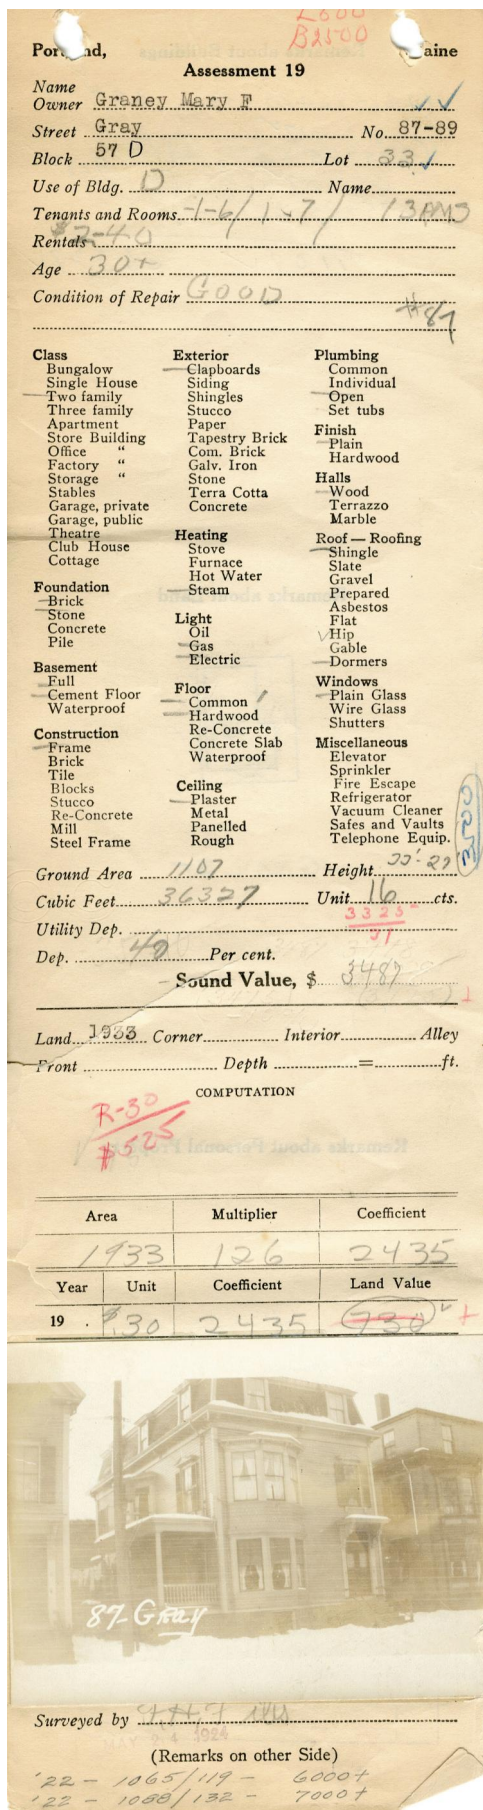 L600
B2500
Portland, Maine
Assessment 19
Name
Owner Graney Mary F
Street Gray No. 87-89
Block 57 D Lot 33
Use of Bldg. D Name
Tenants and Rooms 1-6/1-7/ 13 RMS
Rentals $2-40
Age 30+
Condition of Repair GOOD
#87
Class
Bungalow
Single House
Two family
Three family
Apartment
Store Building
Office "
Factory "
Storage "
Stables
Garage, private
Garage, public
Theatre
Club House
Cottage
Foundation
Brick
Stone
Concrete
Pile
Basement
Full
Cement Floor
Waterproof
Construction
Frame
Brick
Tile
Blocks
Stucco
Re-Concrete
Mill
Steel Frame
Exterior
Clapboards
Siding
Shingles
Stucco
Paper
Tapestry Brick
Com. Brick
Galv. Iron
Stone
Terra Cotta
Concrete
Heating
Stove
Furnace
Hot Water
Steam
Light
Oil
Gas
Electric
Floor
Common
Hardwood
Re-Concrete
Concrete Slab
Waterproof
Ceiling
Plaster
Metal
Panelled
Rough
Plumbing
Common
Individual
Open
Set tubs
Finish
Plain
Hardwood
Halls
Wood
Terrazzo
Marble
Roof — Roofing
Shingle
Slate
Gravel
Prepared
Asbestos
Flat
Hip
Gable
Dormers
Windows
Plain Glass
Wire Glass
Shutters
Miscellaneous
Elevator
Sprinkler
Fire Escape
Refrigerator
Vacuum Cleaner
Safes and Vaults
Telephone Equip.
Ground Area 1107 Height
Cubic Feet 36327 Unit 16 cts.
3325
Utility Dep.
Dep. 40 Per cent.
Sound Value, $ 3487
Land 1933 Corner Interior Alley
Front Depth = ft.
COMPUTATION
R-30
$525
Area Multiplier Coefficient
1933 126 2435
Year Unit Coefficient Land Value
19 . $.30 2435 730
87-Gray
Surveyed by
(Remarks on other Side)
'22 - 1065/119 - 6000+
'22 - 1088/132 - 7000+